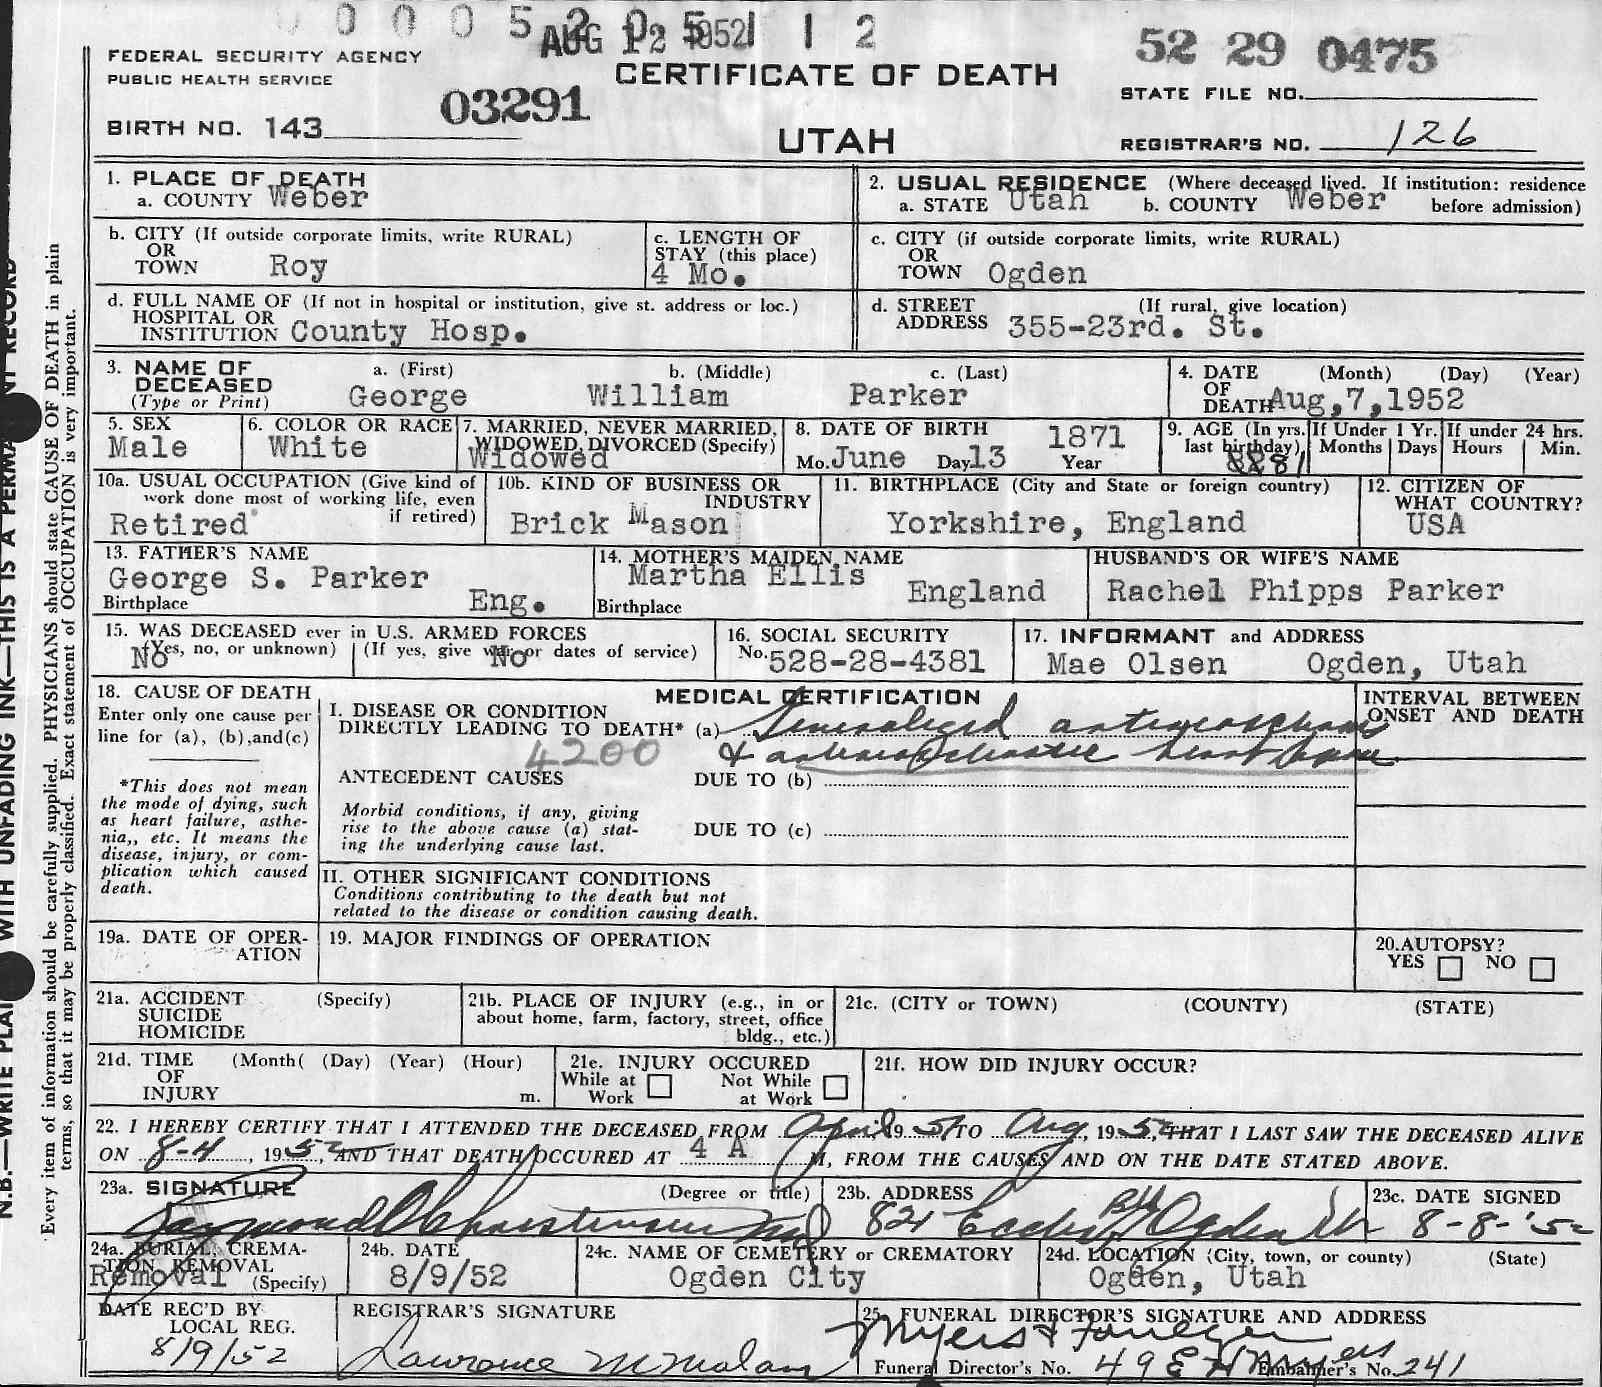 0 0 0 5 2 0 5 1 1 2
AUG 12 1952
52 29 0475
FEDERAL SECURITY AGENCY
PUBLIC HEALTH SERVICE
CERTIFICATE OF DEATH
STATE FILE NO.
03291
BIRTH NO. 143
UTAH
REGISTRAR'S NO. 126
1. PLACE OF DEATH
a. COUNTY Weber
2. USUAL RESIDENCE (Where deceased lived. If institution: residence before admission)
a. STATE Utah b. COUNTY Weber
b. CITY (If outside corporate limits, write RURAL)
OR
TOWN Roy
c. LENGTH OF
STAY (this place)
4 Mo.
c. CITY (if outside corporate limits, write RURAL)
OR
TOWN Ogden
d. FULL NAME OF (If not in hospital or institution, give st. address or loc.)
HOSPITAL OR
INSTITUTION County Hosp.
d. STREET (If rural, give location)
ADDRESS 355-23rd. St.
3. NAME OF
DECEASED
(Type or Print)
a. (First) b. (Middle) c. (Last)
George William Parker
4. DATE (Month) (Day) (Year)
OF
DEATH Aug,7,1952
5. SEX
Male
6. COLOR OR RACE
White
7. MARRIED, NEVER MARRIED,
WIDOWED, DIVORCED (Specify)
Widowed
8. DATE OF BIRTH 1871
Mo. June Day 13 Year
9. AGE (In yrs. last birthday) 81
If Under 1 Yr. Months Days
If under 24 hrs. Hours Min.
10a. USUAL OCCUPATION (Give kind of
work done most of working life, even
if retired)
Retired
10b. KIND OF BUSINESS OR
INDUSTRY
Brick Mason
11. BIRTHPLACE (City and State or foreign country)
Yorkshire, England
12. CITIZEN OF
WHAT COUNTRY?
USA
13. FATHER'S NAME
George S. Parker
Birthplace Eng.
14. MOTHER'S MAIDEN NAME
Martha Ellis
Birthplace England
HUSBAND'S OR WIFE'S NAME
Rachel Phipps Parker
15. WAS DECEASED ever in U.S. ARMED FORCES
(Yes, no, or unknown) (If yes, give war or dates of service)
No No
16. SOCIAL SECURITY
No. 528-28-4381
17. INFORMANT and ADDRESS
Mae Olsen Ogden, Utah
18. CAUSE OF DEATH
Enter only one cause per
line for (a), (b),and(c)
*This does not mean
the mode of dying, such
as heart failure, asthe-
nia,, etc. It means the
disease, injury, or com-
plication which caused
death.
MEDICAL CERTIFICATION
I. DISEASE OR CONDITION
DIRECTLY LEADING TO DEATH* (a) Generalized
4200
& heart
ANTECEDENT CAUSES DUE TO (b)
Morbid conditions, if any, giving
rise to the above cause (a) stat-
ing the underlying cause last.
DUE TO (c)
II. OTHER SIGNIFICANT CONDITIONS
Conditions contributing to the death but not
related to the disease or condition causing death.
INTERVAL BETWEEN
ONSET AND DEATH
19a. DATE OF OPER-
ATION
19. MAJOR FINDINGS OF OPERATION
20.AUTOPSY?
YES NO
21a. ACCIDENT (Specify)
SUICIDE
HOMICIDE
21b. PLACE OF INJURY (e.g., in or
about home, farm, factory, street, office
bldg., etc.)
21c. (CITY or TOWN) (COUNTY) (STATE)
21d. TIME (Month( (Day) (Year) (Hour)
OF
INJURY m.
21e. INJURY OCCURED
While at Work Not While at Work
21f. HOW DID INJURY OCCUR?
22. I HEREBY CERTIFY THAT I ATTENDED THE DECEASED FROM April 1951 TO Aug, 1952, THAT I LAST SAW THE DECEASED ALIVE
ON 8-4, 1952, AND THAT DEATH OCCURED AT 4 A M, FROM THE CAUSES AND ON THE DATE STATED ABOVE.
23a. SIGNATURE (Degree or title)
Raymond Christensen MD
23b. ADDRESS
821 Eccles Bld Ogden Ut
23c. DATE SIGNED
8-8-'52
24a. BURIAL, CREMA-
TION, REMOVAL
(Specify)
Removal
24b. DATE
8/9/52
24c. NAME OF CEMETERY or CREMATORY
Ogden City
24d. LOCATION (City, town, or county) (State)
Ogden, Utah
DATE REC'D BY
LOCAL REG.
8/9/52
REGISTRAR'S SIGNATURE
Lawrence M Malan
25. FUNERAL DIRECTOR'S SIGNATURE AND ADDRESS
Myers &
Funeral Director's No. 49 E H Myers Embalmer's No. 241
N.B.—WRITE PLAI WITH UNFADING INK—THIS IS A PERMA NT RECORD
Every item of information should be carefully supplied. PHYSICIANS should state CAUSE OF DEATH in plain
terms, so that it may be properly classified. Exact statement of OCCUPATION is very important.